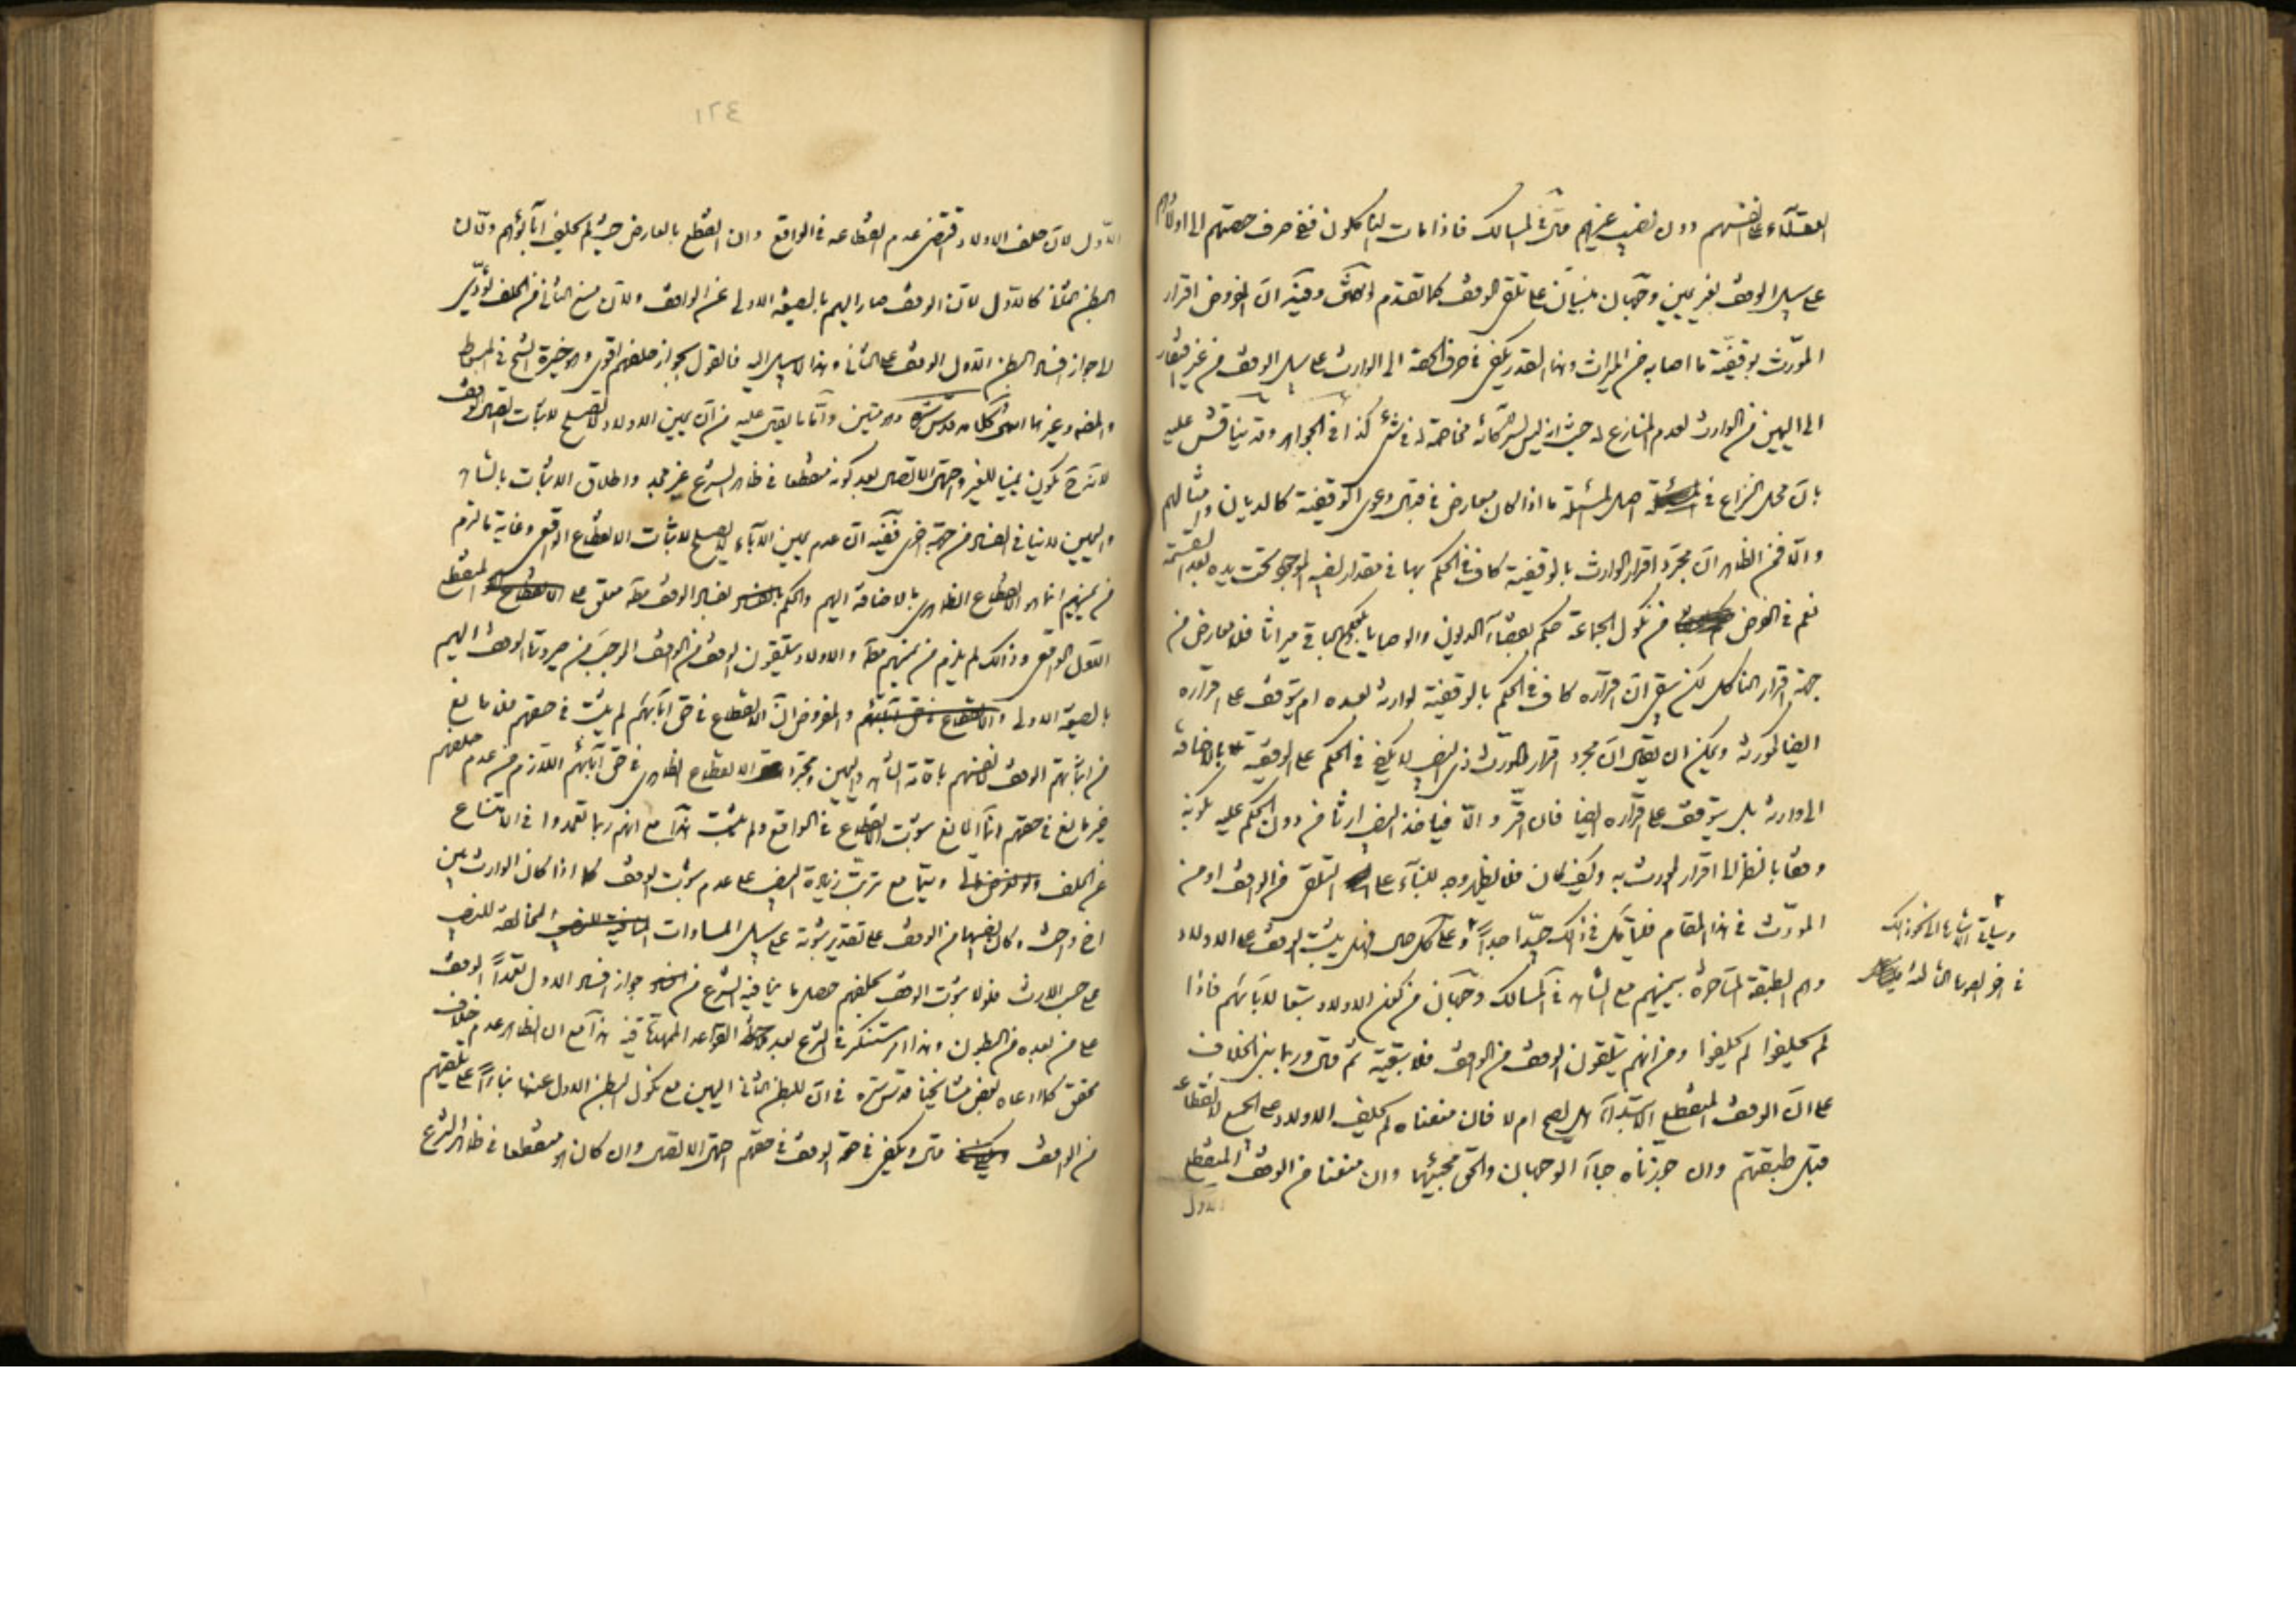 العقلاء على انفسهم دون نصيب غيرهم قال في المسالك فاذا مات الناكلون ففي صرف حصتهم الى اولادهم
على سبيل الوقف بغير يمين وجهان مبنيان على تلقي الوقف كما تقدم وفيه ان المفروض اقرار
المورث بوقفية ما اصابه من الميراث وهذا القدر يكفي في صرف الحصة الى الوارث على سبيل الوقف من غير افتقار
الى اليمين من الوارث لعدم المنازع له حيث انه ليس لشركائه مخاصمة له في شيء كذا في الجواهر وقد يناقش عليه
بان محل النزاع في اصل المسئلة ما اذا كان معارض في قبال دعوى الوقفية كالديان وامثالهم
والا فمن الظاهر ان مجرد اقرار الوارث بالوقفية كاف في الحكم بها في مقدار نصيبه الموجود تحت يده بعد القسمة
نعم في الفرض من نكول الجماعة حكم بقضاء الديون والوصايا فلا معارض من
جهة اقرار الناكل لكن بقي ان اقراره كاف في الحكم بالوقفية لوارثه بعده ام يتوقف على اقراره
ايضا كمورثه ويمكن ان يقال ان مجرد اقرار المورث ذي النصيب لا يكفي في الحكم على الوقفية بالاضافة
الى وارثه بل يتوقف على اقراره ايضا فان اقر والا فياخذ النصيب ارثا من دون الحكم عليه بكونه
وقفا بالنظر الى اقرار المورث به وكيف كان فلا يظهر وجه للبناء على التلقي من الواقف او من
المورث في هذا المقام فليتامل في ذلك جيدا جدا وعلى كل حال فهل يثبت الوقف على الاولاد
وهم الطبقة المتاخرة بيمينهم مع الشاهد في المسالك وجهان من كون الاولاد تبعا لابائهم فاذا
لم يحلفوا لم يحلفوا ومن انهم يتلقون الوقف من الواقف فلا تبعية ثم قال وربما بني الخلاف
على ان الوقف المنقطع الابتداء هل يصح ام لا فان منعناه لم يحلف الاولاد على الجميع لانقطاعه
قبل طبقتهم وان جوزناه جاء الوجهان والحق مجيئهما وان منعنا من الوقف المنقطع
الاول
وسياتي الاشارة الى نحو ذلك
في اخر الصورة الثالثة
١٢٤
الاول لان حلف الاولاد قد اقتضى عدم انقطاعه في الواقع وان انقطع بالعارض حيث لم يحلف آباؤهم ولان
البطن الثاني كالاول لان الوقف صار اليهم بالصيغة الاولى عن الواقف ولان منع الثاني من الحلف يؤدي
الى جواز افساد البطن الاول الوقف على الثاني وهذا لا سبيل اليه فالقول بجواز حلفهم اقوى وهو خيرة الشيخ في المبسوط
والمص وغيرهما انتهى كلامه قدس سره وهو متين واما ما يقال عليه من ان يمين الاولاد لا تصلح لاثبات اتصال الوقف
لانه حينئذ يكون يمينا للغير واحتمال الاتصال بعد كونه منقطعا في ظاهر الشرع غير مجد واطلاق الاثبات بالشاهد
واليمين لا ينافي الفساد من جهة اخرى ففيه ان عدم يمين الآباء لا يصلح لاثبات الانقطاع الواقعي وغاية ما لزم
من يمينهم انما هو الانقطاع الظاهري بالاضافة اليهم والحكم بفساد الوقف معلق على المنقطع
الاول الواقعي وذلك لم يلزم من يمينهم والاولاد يتلقون الوقف من الواقف الموجب من صيرورة الوقف اليهم
بالصيغة الاولى والمفروض ان الانقطاع في حق آبائهم لم يثبت في حقهم فلا مانع
من اثباتهم الوقف لانفسهم باقامة الشاهد واليمين ومجرد الانقطاع الظاهري في حق آبائهم اللازم من عدم حلفهم
غير مانع في حقهم انما المانع ثبوت الانقطاع في الواقع ولم يثبت هذا مع انهم ربما تعمدوا في الامتناع
عن الحلف وسيما مع ترتب زيادة النصيب على عدم ثبوت الوقف كما اذا كان الوارث بين
اخ واخت وكان نصيبهما من الوقف على تقدير ثبوته على سبيل المساوات المخالفة للنصيب
على حسب الارث فلولا ثبوت الوقف بحلفهم حصل ما ينافيه الشرع من جواز افساد الاول تعمدا الوقف
على من بعده من البطون وهذا امر مستنكر في الشرع بعد ملاحظة القواعد الممهدة فيه هذا مع ان الظاهر عدم خلاف
محقق كما ادعاه بعض مشايخنا قدس سره في ان للبطن الثاني اليمين مع نكول البطن الاول عنها بناء على تلقيهم
من الواقف قال ويكفي في صحة الوقف في حقهم احتمال الاتصال وان كان هو منقطعا في ظاهر الشرع